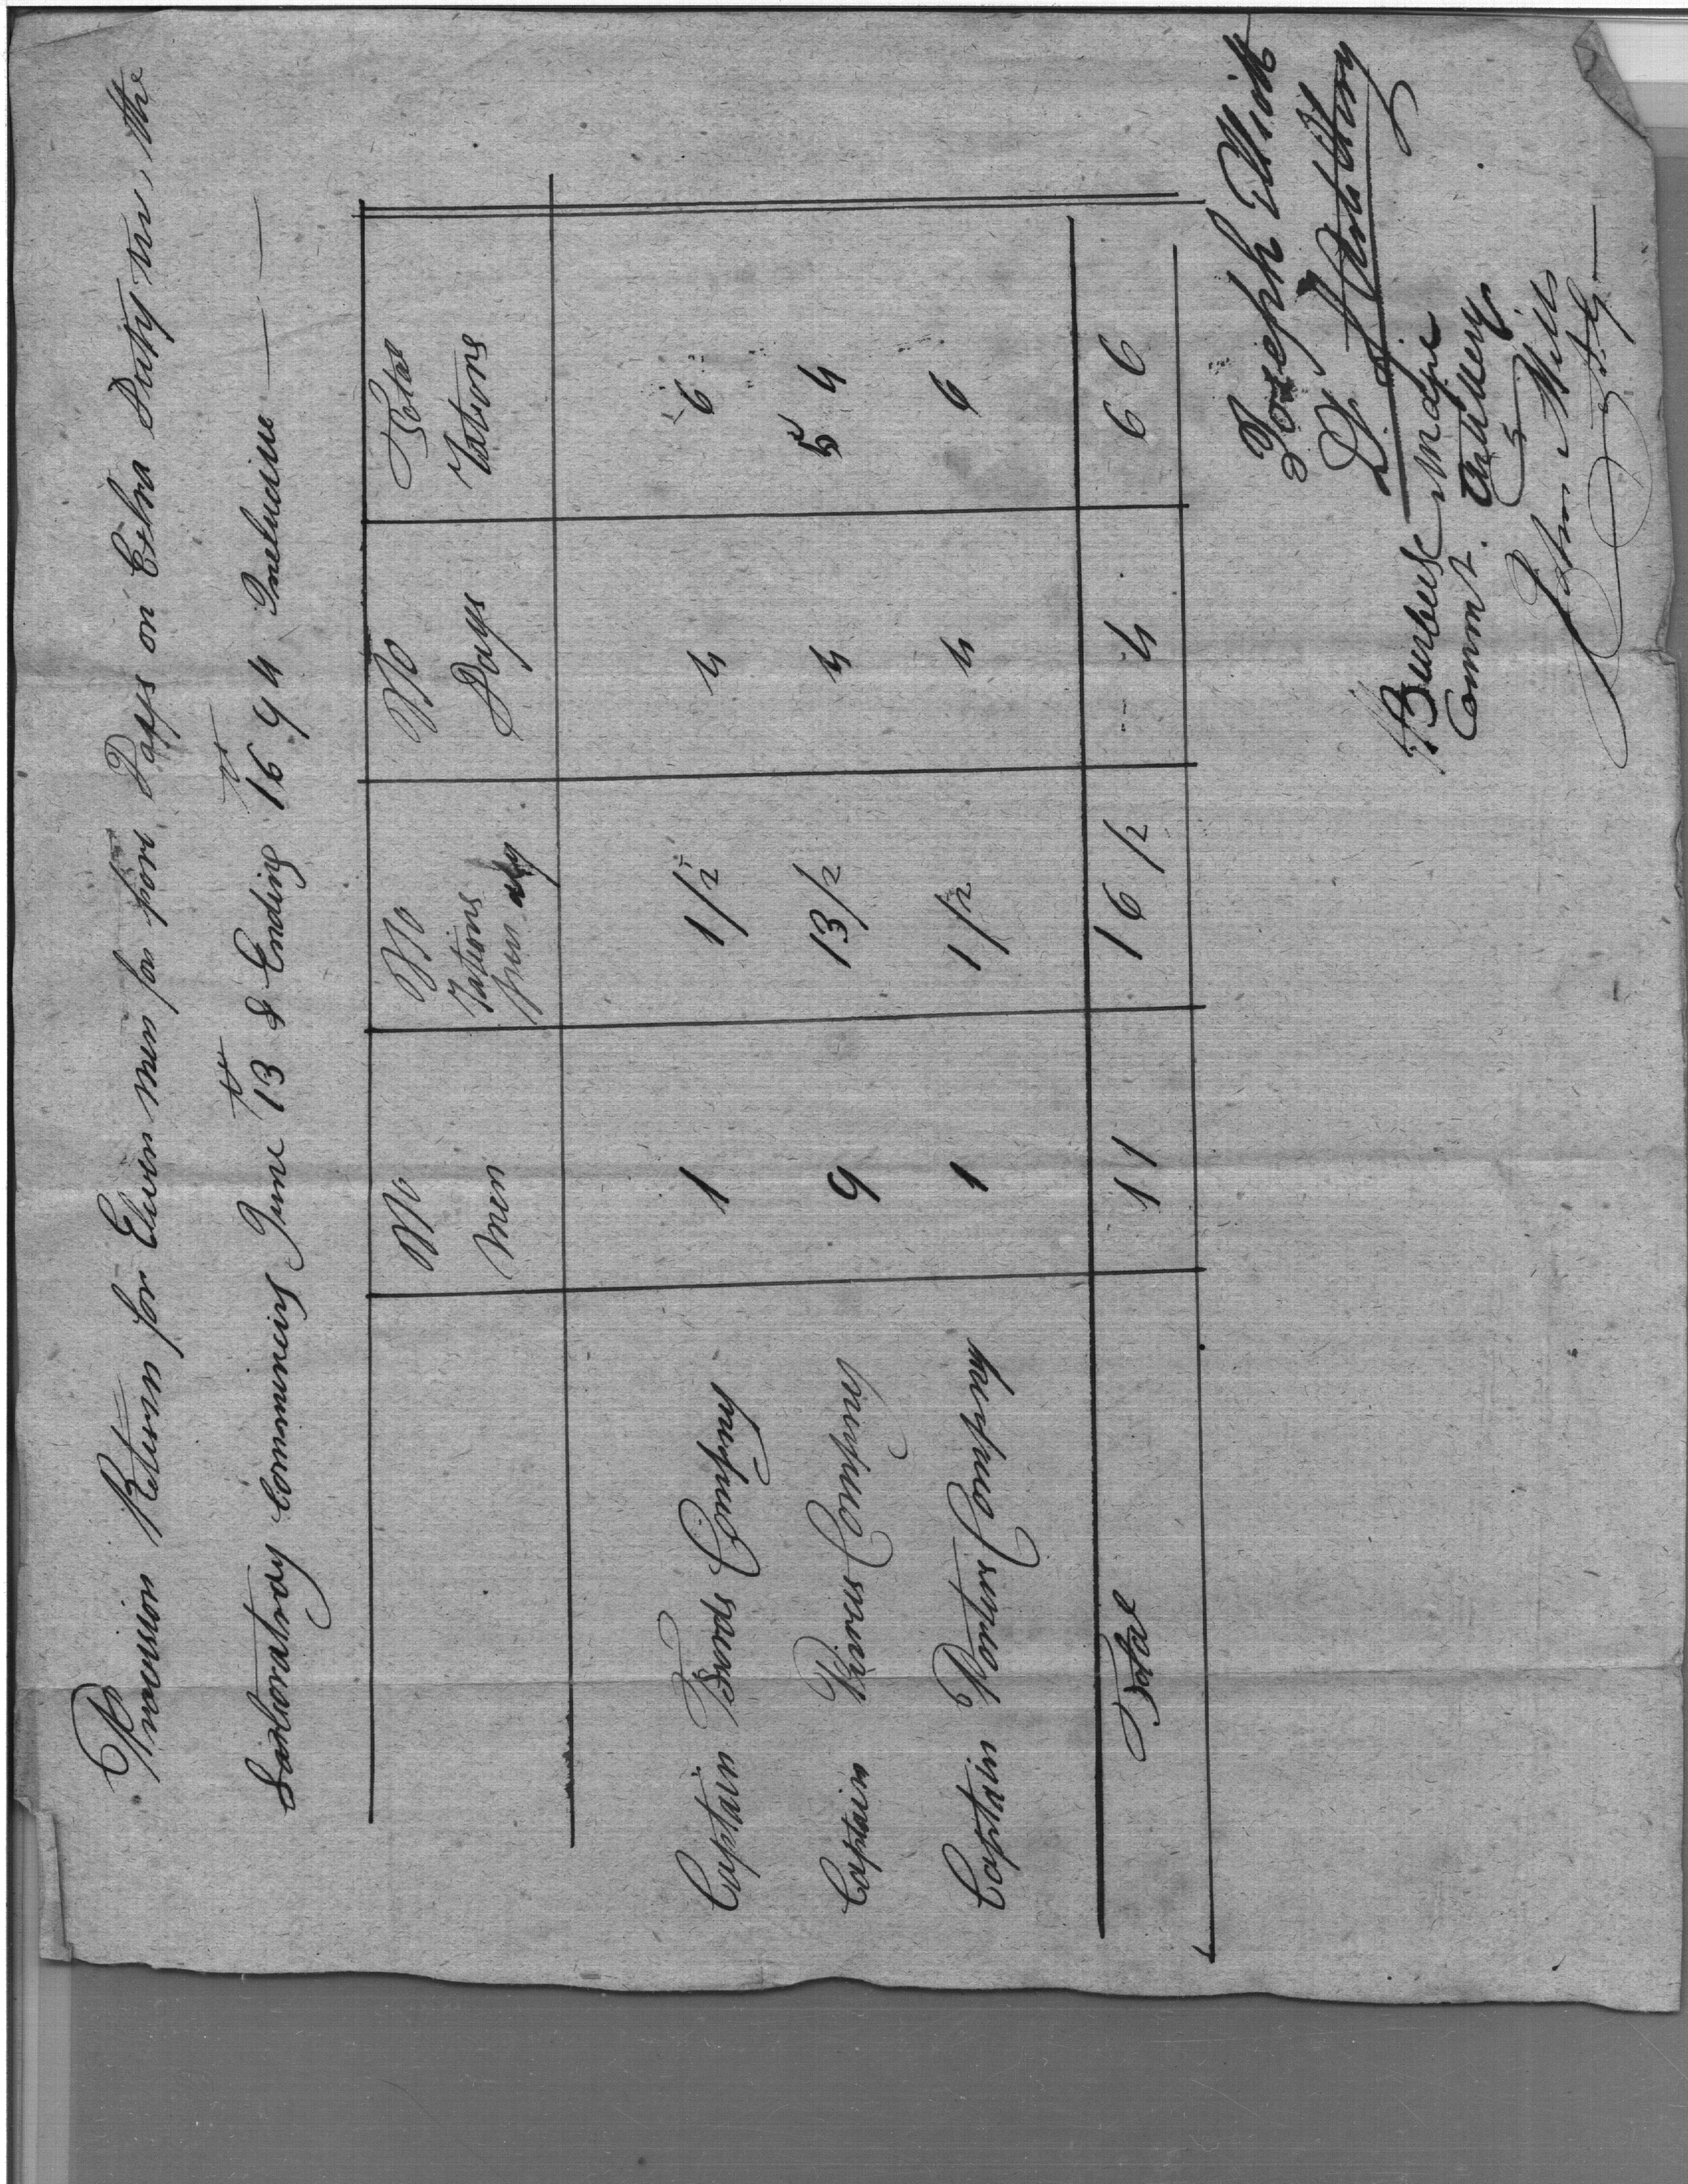 Provision Return for Eleven men for four Days on Extra Duty in the
Laboratory Commencing June 13th & Ending 16th 94 Inclusive
No men No rations per day No Days Total rations
Captain Fords Company 1 1 1/2 4 6
Captain Peirces Company 9 13 1/2 4 54
Captain Porters Company 1 1 1/2 4 6
Total 11 16 1/2 4 66
Joseph Elliott
Lt Artillery
HBurbeck Major
Commt. Artillery
John Mills